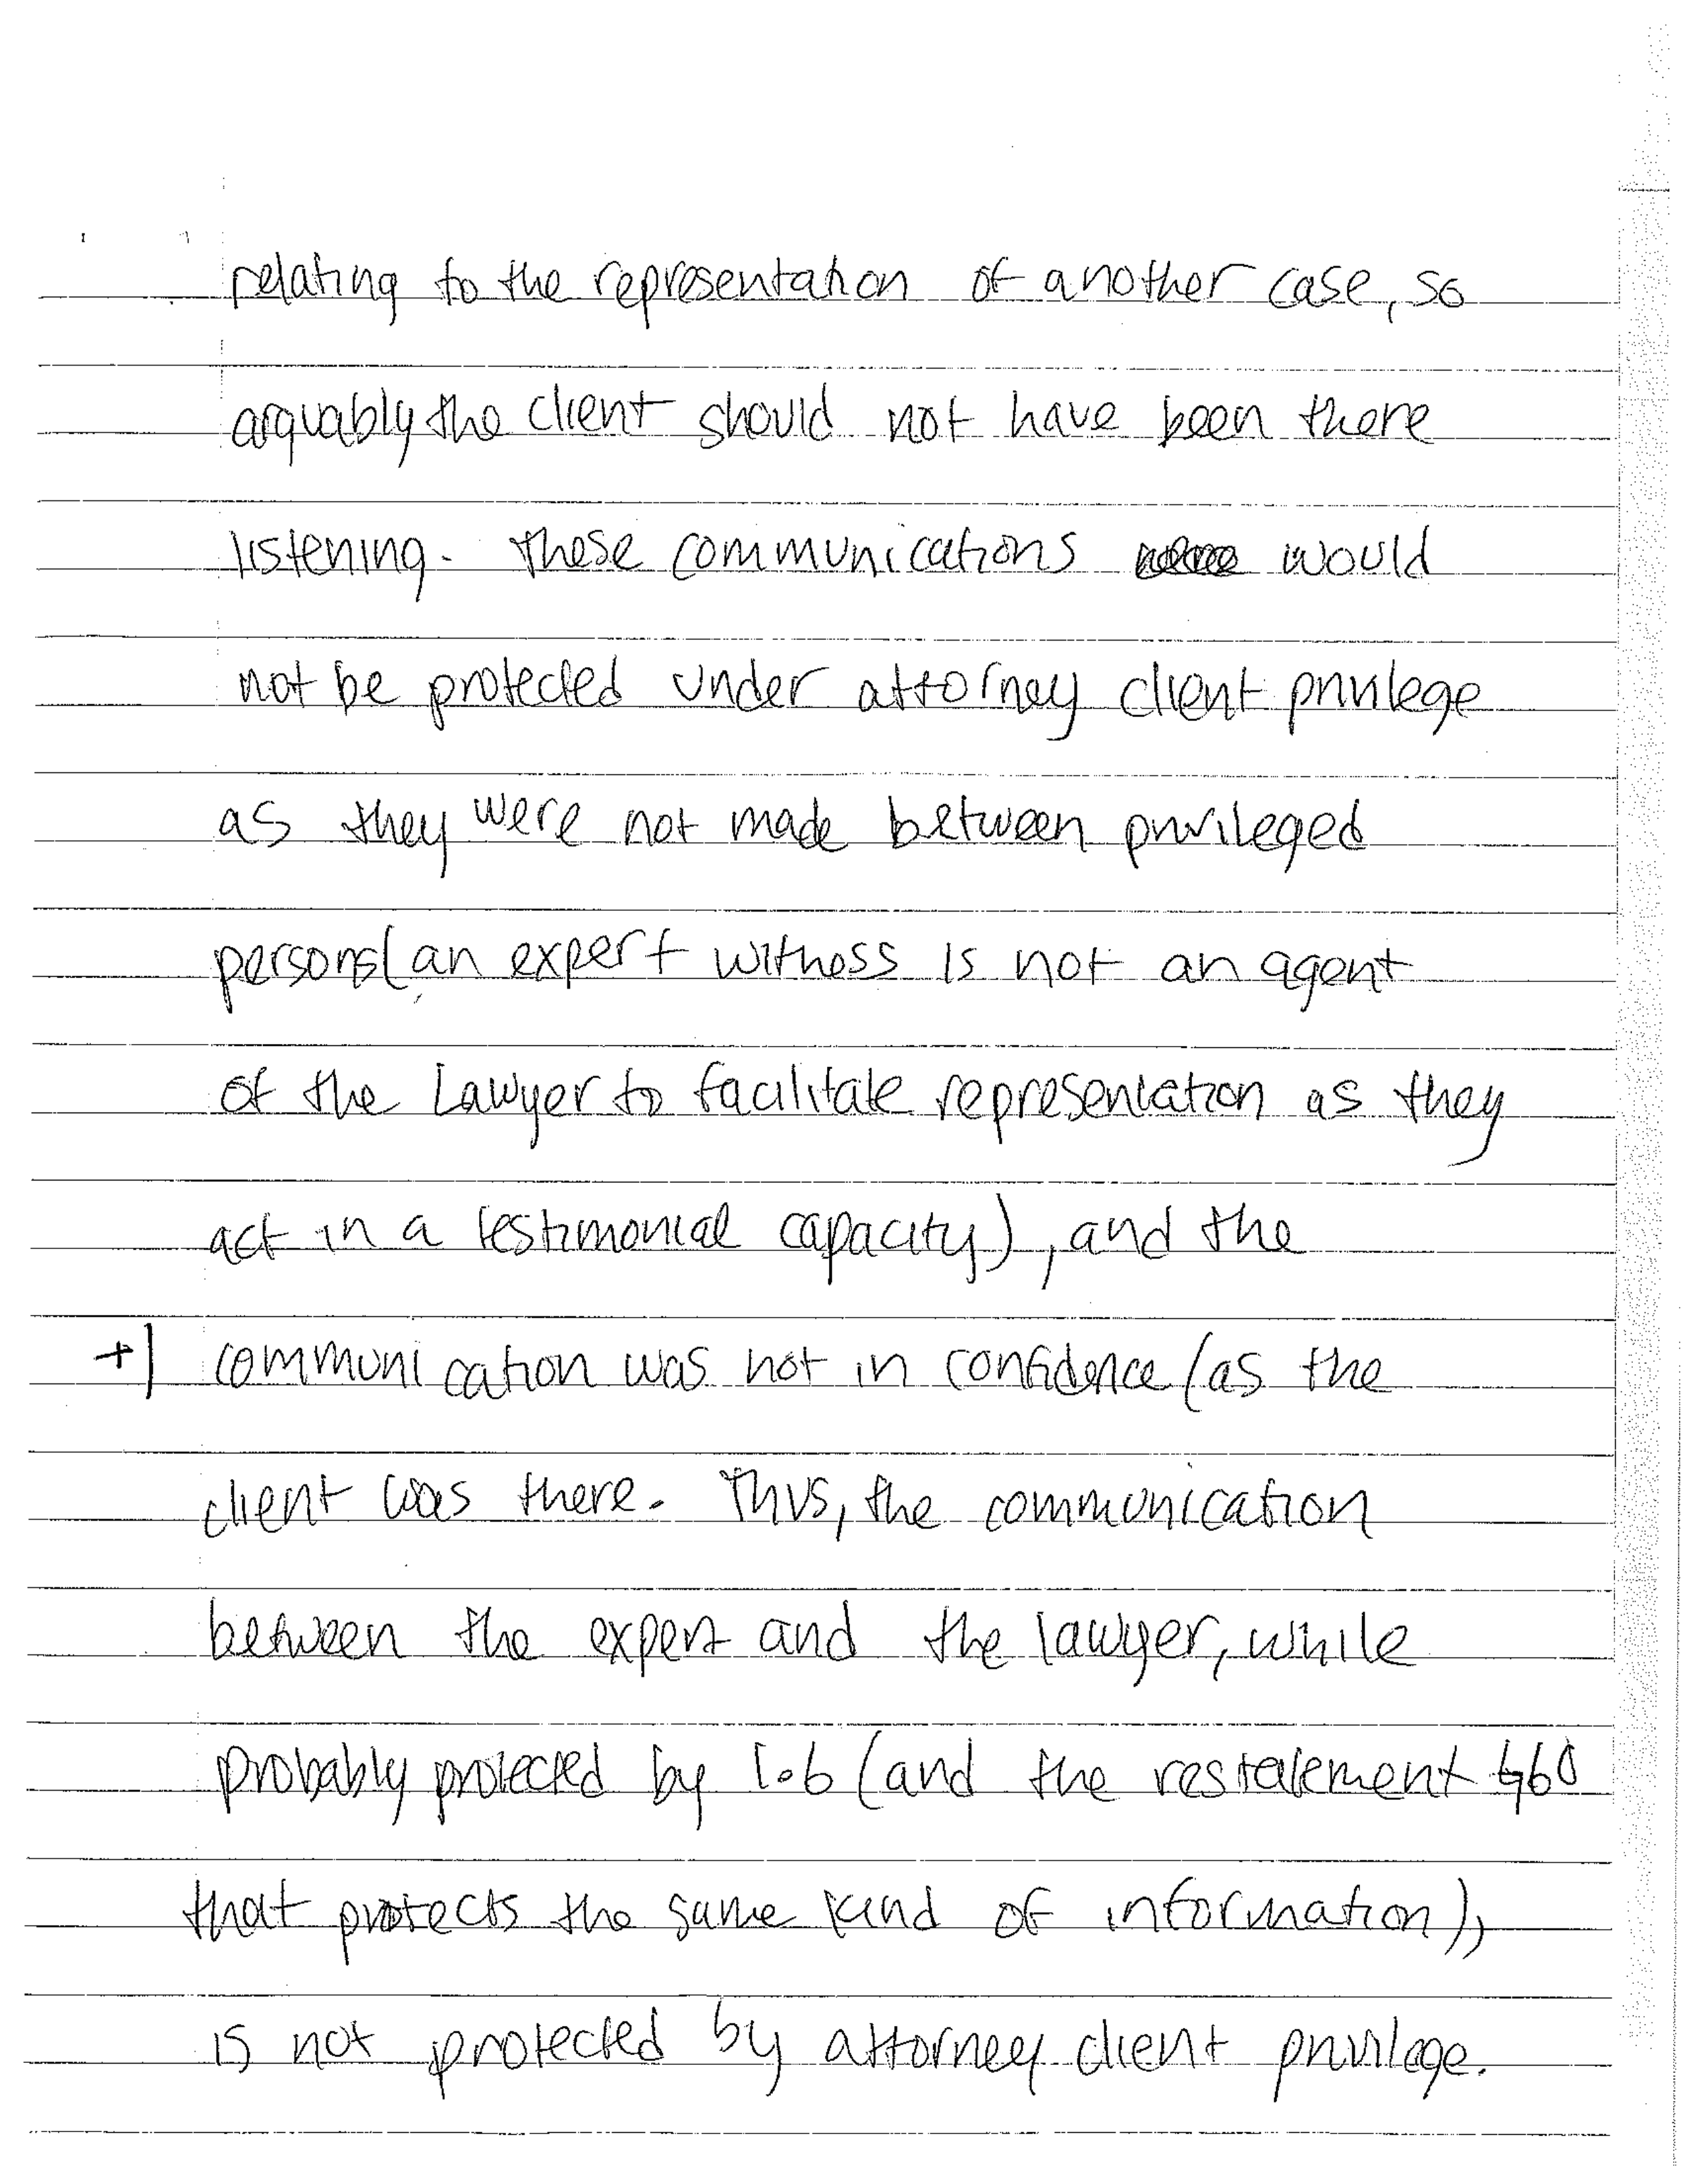 relating to the representation of another case, so
arguably the client should not have been there
listening. These communications would
not be protected under attorney client privilege
as they were not made between privileged
persons(an expert witness is not an agent
of the Lawyer to facilitate representation as they
act in a testimonial capacity), and the
+| communication was not in confidence (as the
client was there. Thus, the communication
between the expert and the lawyer, while
probably protected by 1.6 (and the restatement §60
that protects the same kind of information),
is not protected by attorney client privilege.